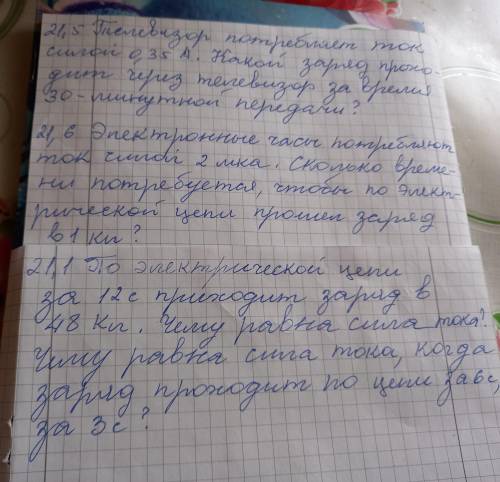 21,5 Телевизор потребляет ток
силой 0,35 А. Какой заряд прохо-
дит через телевизор за время
30-минутной передачи?
21,6 Электронные часы потребляют
ток силой 2 мкА. Сколько време-
ни потребуется, чтобы по элект-
рической цепи прошел заряд
в 1 Кл?
21,1 По электрической цепи
за 12 с приходит заряд в
48 Кл. Чему равна сила тока?
Чему равна сила тока, когда
заряд проходит по цепи за 6с,
за 3с?